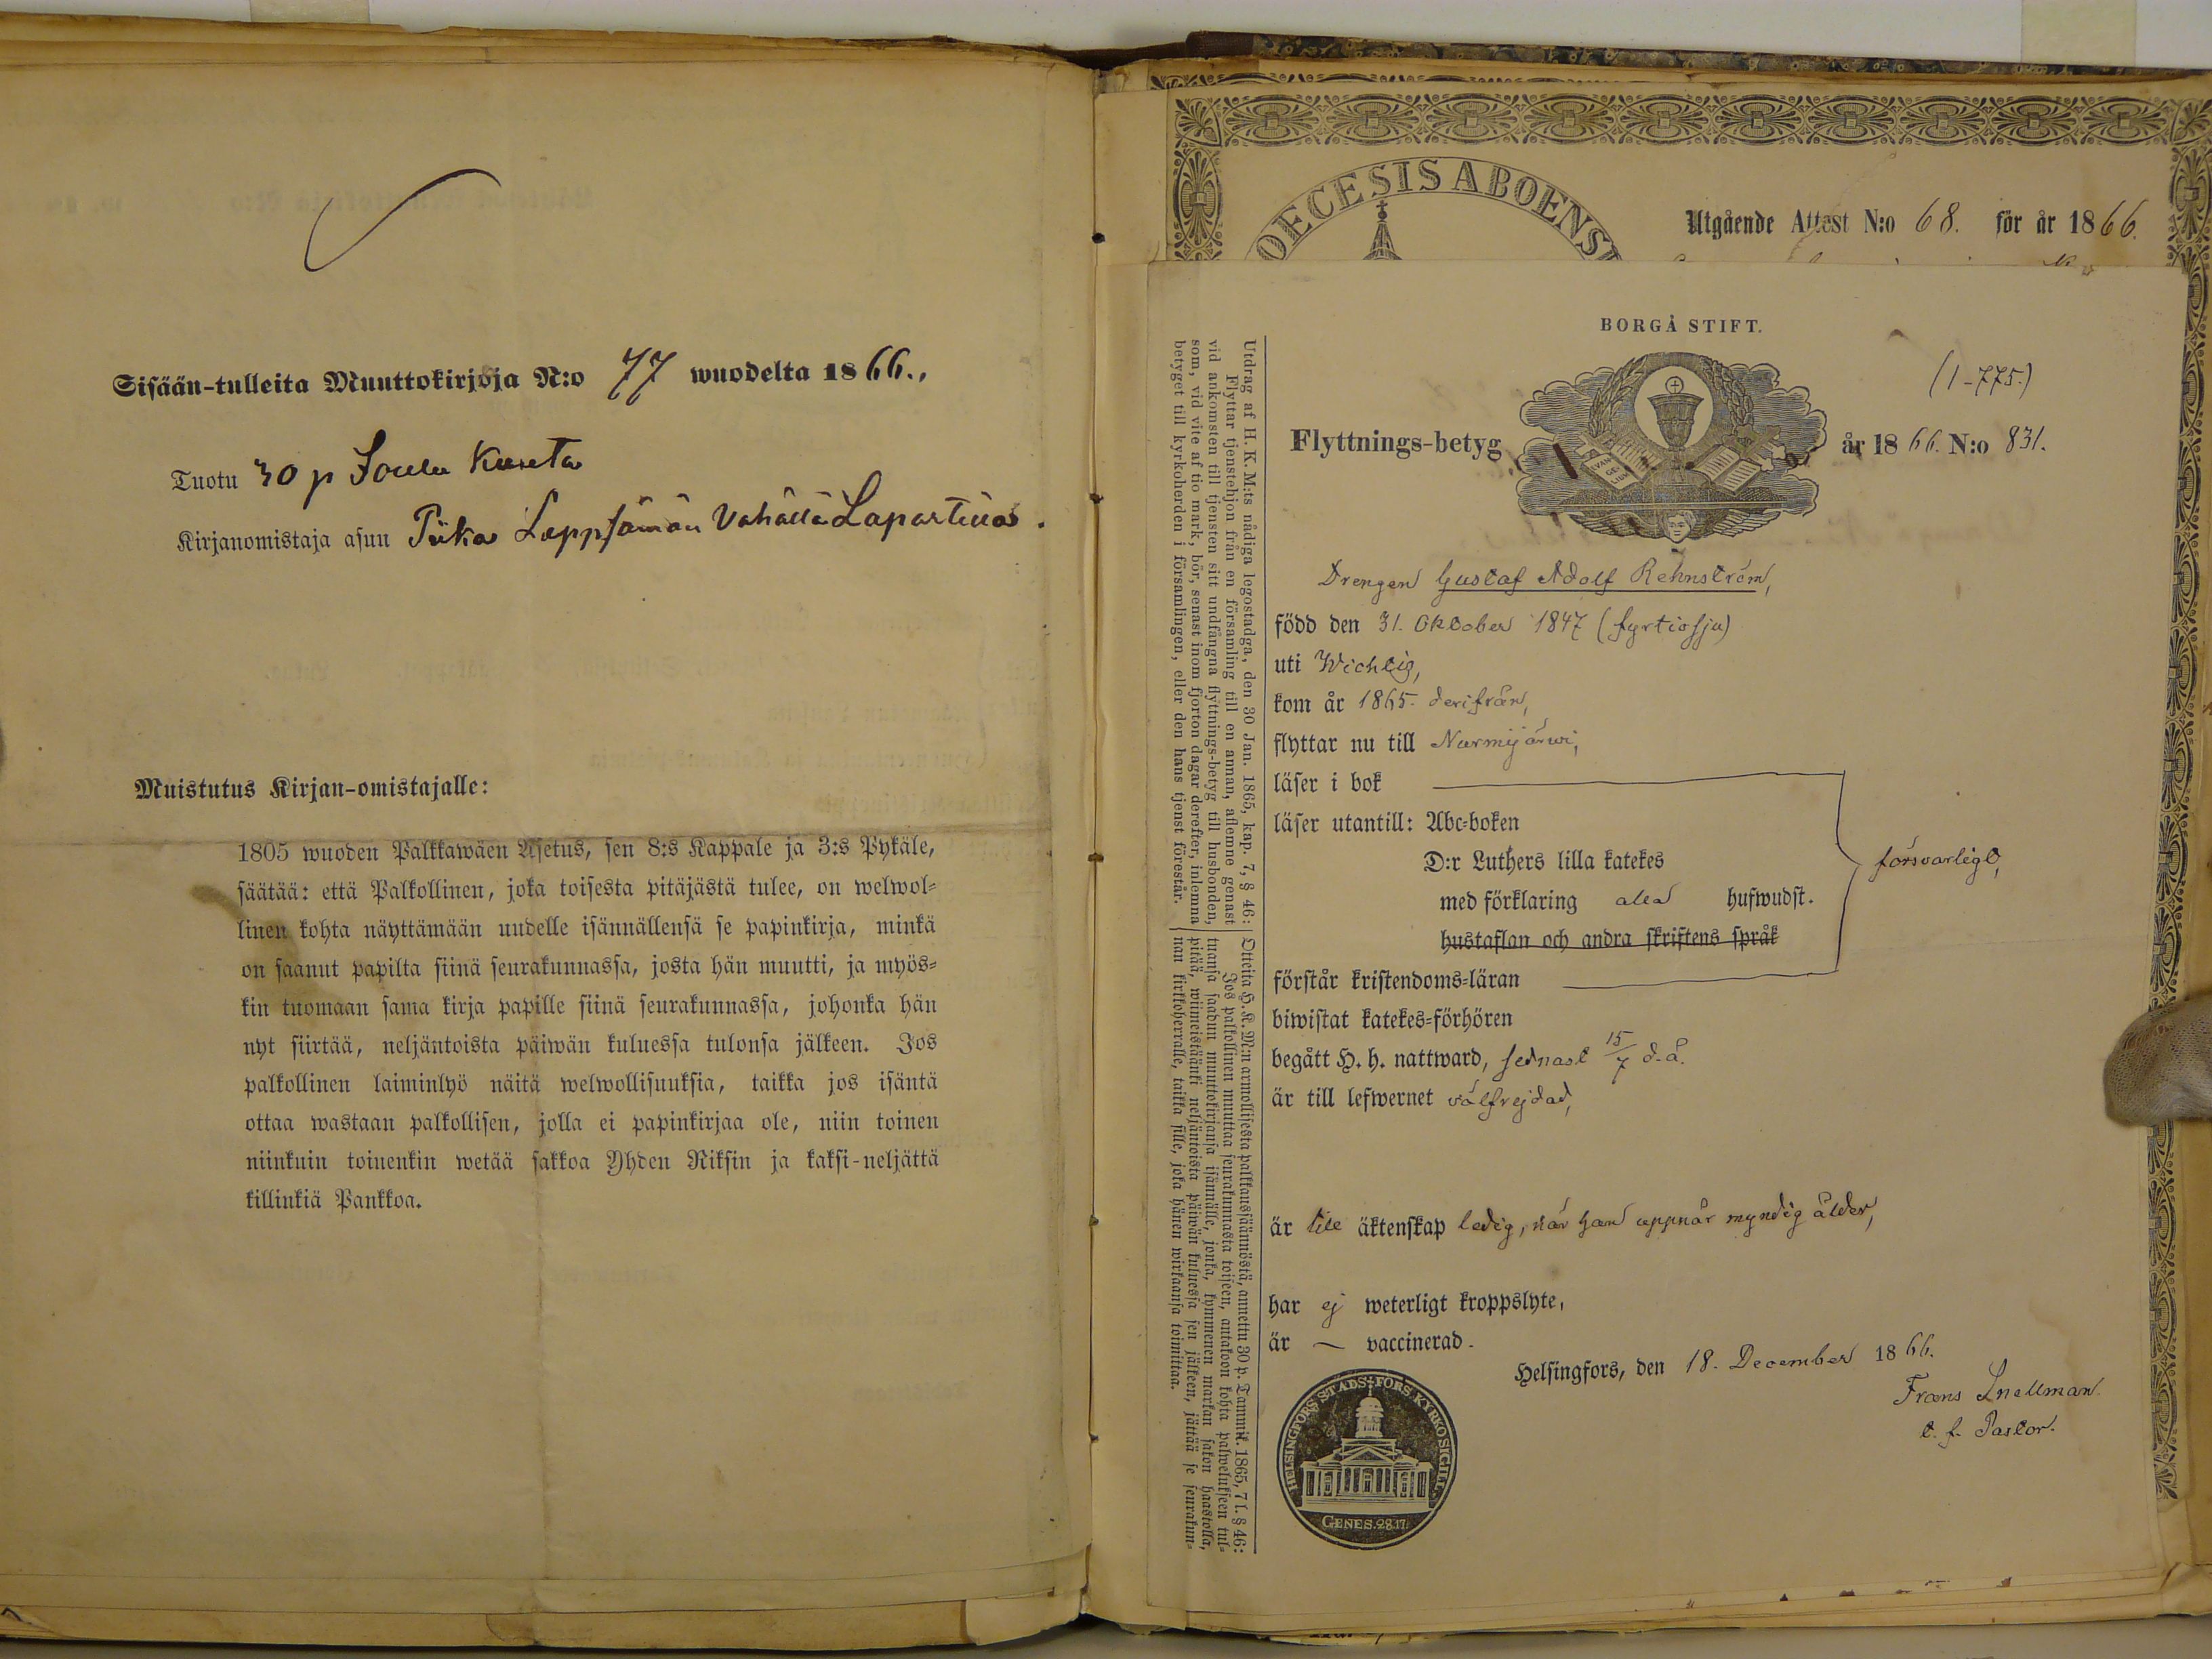 Sisään-tulleita Muuttokirjoja N:o 77 wuodelta 1866.,
Tuotu 30 p Joulu Kuuta
Kirjanomistaja asuu Piika Leppsämän Vahällä Lapartilla.
Muistutus Kirjan-omistajalle:
1805 wuoden Palkkawäen Asetus, sen 8:s Kappale ja 3:s Pykäle,
säätää: että Palkollinen, joka toisesta pitäjästä tulee, on welwol=
linen kohta näyttämään uudelle isännällensä se papinkirja, minkä
on saanut papilta siinä seurakunnassa, josta hän muutti, ja myös=
kin tuomaan sama kirja papille siinä seurakunnassa, johonka hän
nyt siirtää, neljäntoista päiwän kuluessa tulonsa jälkeen. Jos
palkollinen laiminlyö näitä welwollisuuksia, taikka jos isäntä
ottaa wastaan palkollisen, jolla ei papinkirjaa ole, niin toinen
niinkuin toinenkin wetää sakkoa Yhden Riksin ja kaksi-neljättä
killinkiä Pankkoa.
OECESIS ABOENSI
Utgående Attest N:o 68. för år 1866.
Utdrag af H. K. M:ts nådiga legostadga, den 30 Jan. 1865, kap. 7, § 46:
Flyttar tjenstehjon från en församling till en annan, aflemne genast
vid ankomsten till tjensten sitt undfångna flyttnings-betyg till husbonden,
som, vid vite af tio mark, bör, senast inom fjorton dagar derefter, inlemna
betyget till kyrkoherden i församlingen, eller den hans tjenst förestår.
Otteita H. K. M:n armollisesta palkkaussäännöstä, annettu 30 p. Tammik. 1865, 7 l. § 46:
Jos palkollinen muuttaa seurakunnasta toiseen, antakoon kohta palwelukseen tul=
tuansa saadun muuttokirjansa isännälle, jonka, kymmenen markan sakon haastolla,
pitää, wiimeistäänki neljäntoista päiwän kuluessa sen jälkeen, jättää se seurakun=
nan kirkkoherralle, taikka sille, joka hänen wirkaansa toimittaa.
BORGÅ STIFT.
(1-775.)
Flyttnings-betyg år 1866. N:o 831.
EVANGELIUM
Drengen Gustaf Adolf Rehnström,
född den 31. Oktober 1847 (fyrtiosju)
uti Wichtis,
kom år 1865. derifrån,
flyttar nu till Nurmijärwi,
läser i bok
läser utantill: Abc=boken
D:r Luthers lilla katekes
med förklaring alla hufwudst.
hustaflan och andra skriftens språk
försvarligt,
förstår kristendoms=läran
biwistat katekes=förhören
begått H. h. nattward, sednast 15/7 d. å.
är till lefwernet välfrejdad,
är till äktenskap ledig, när han uppnår myndig ålder,
har ej weterligt kroppslyte,
är — vaccinerad.
Helsingfors, den 18. December 1866.
Frans Snellman.
t. f. Pastor.
HELSINGFORS STADS-FÖRS. KYRKOSIGILL
GENES. 28.17.